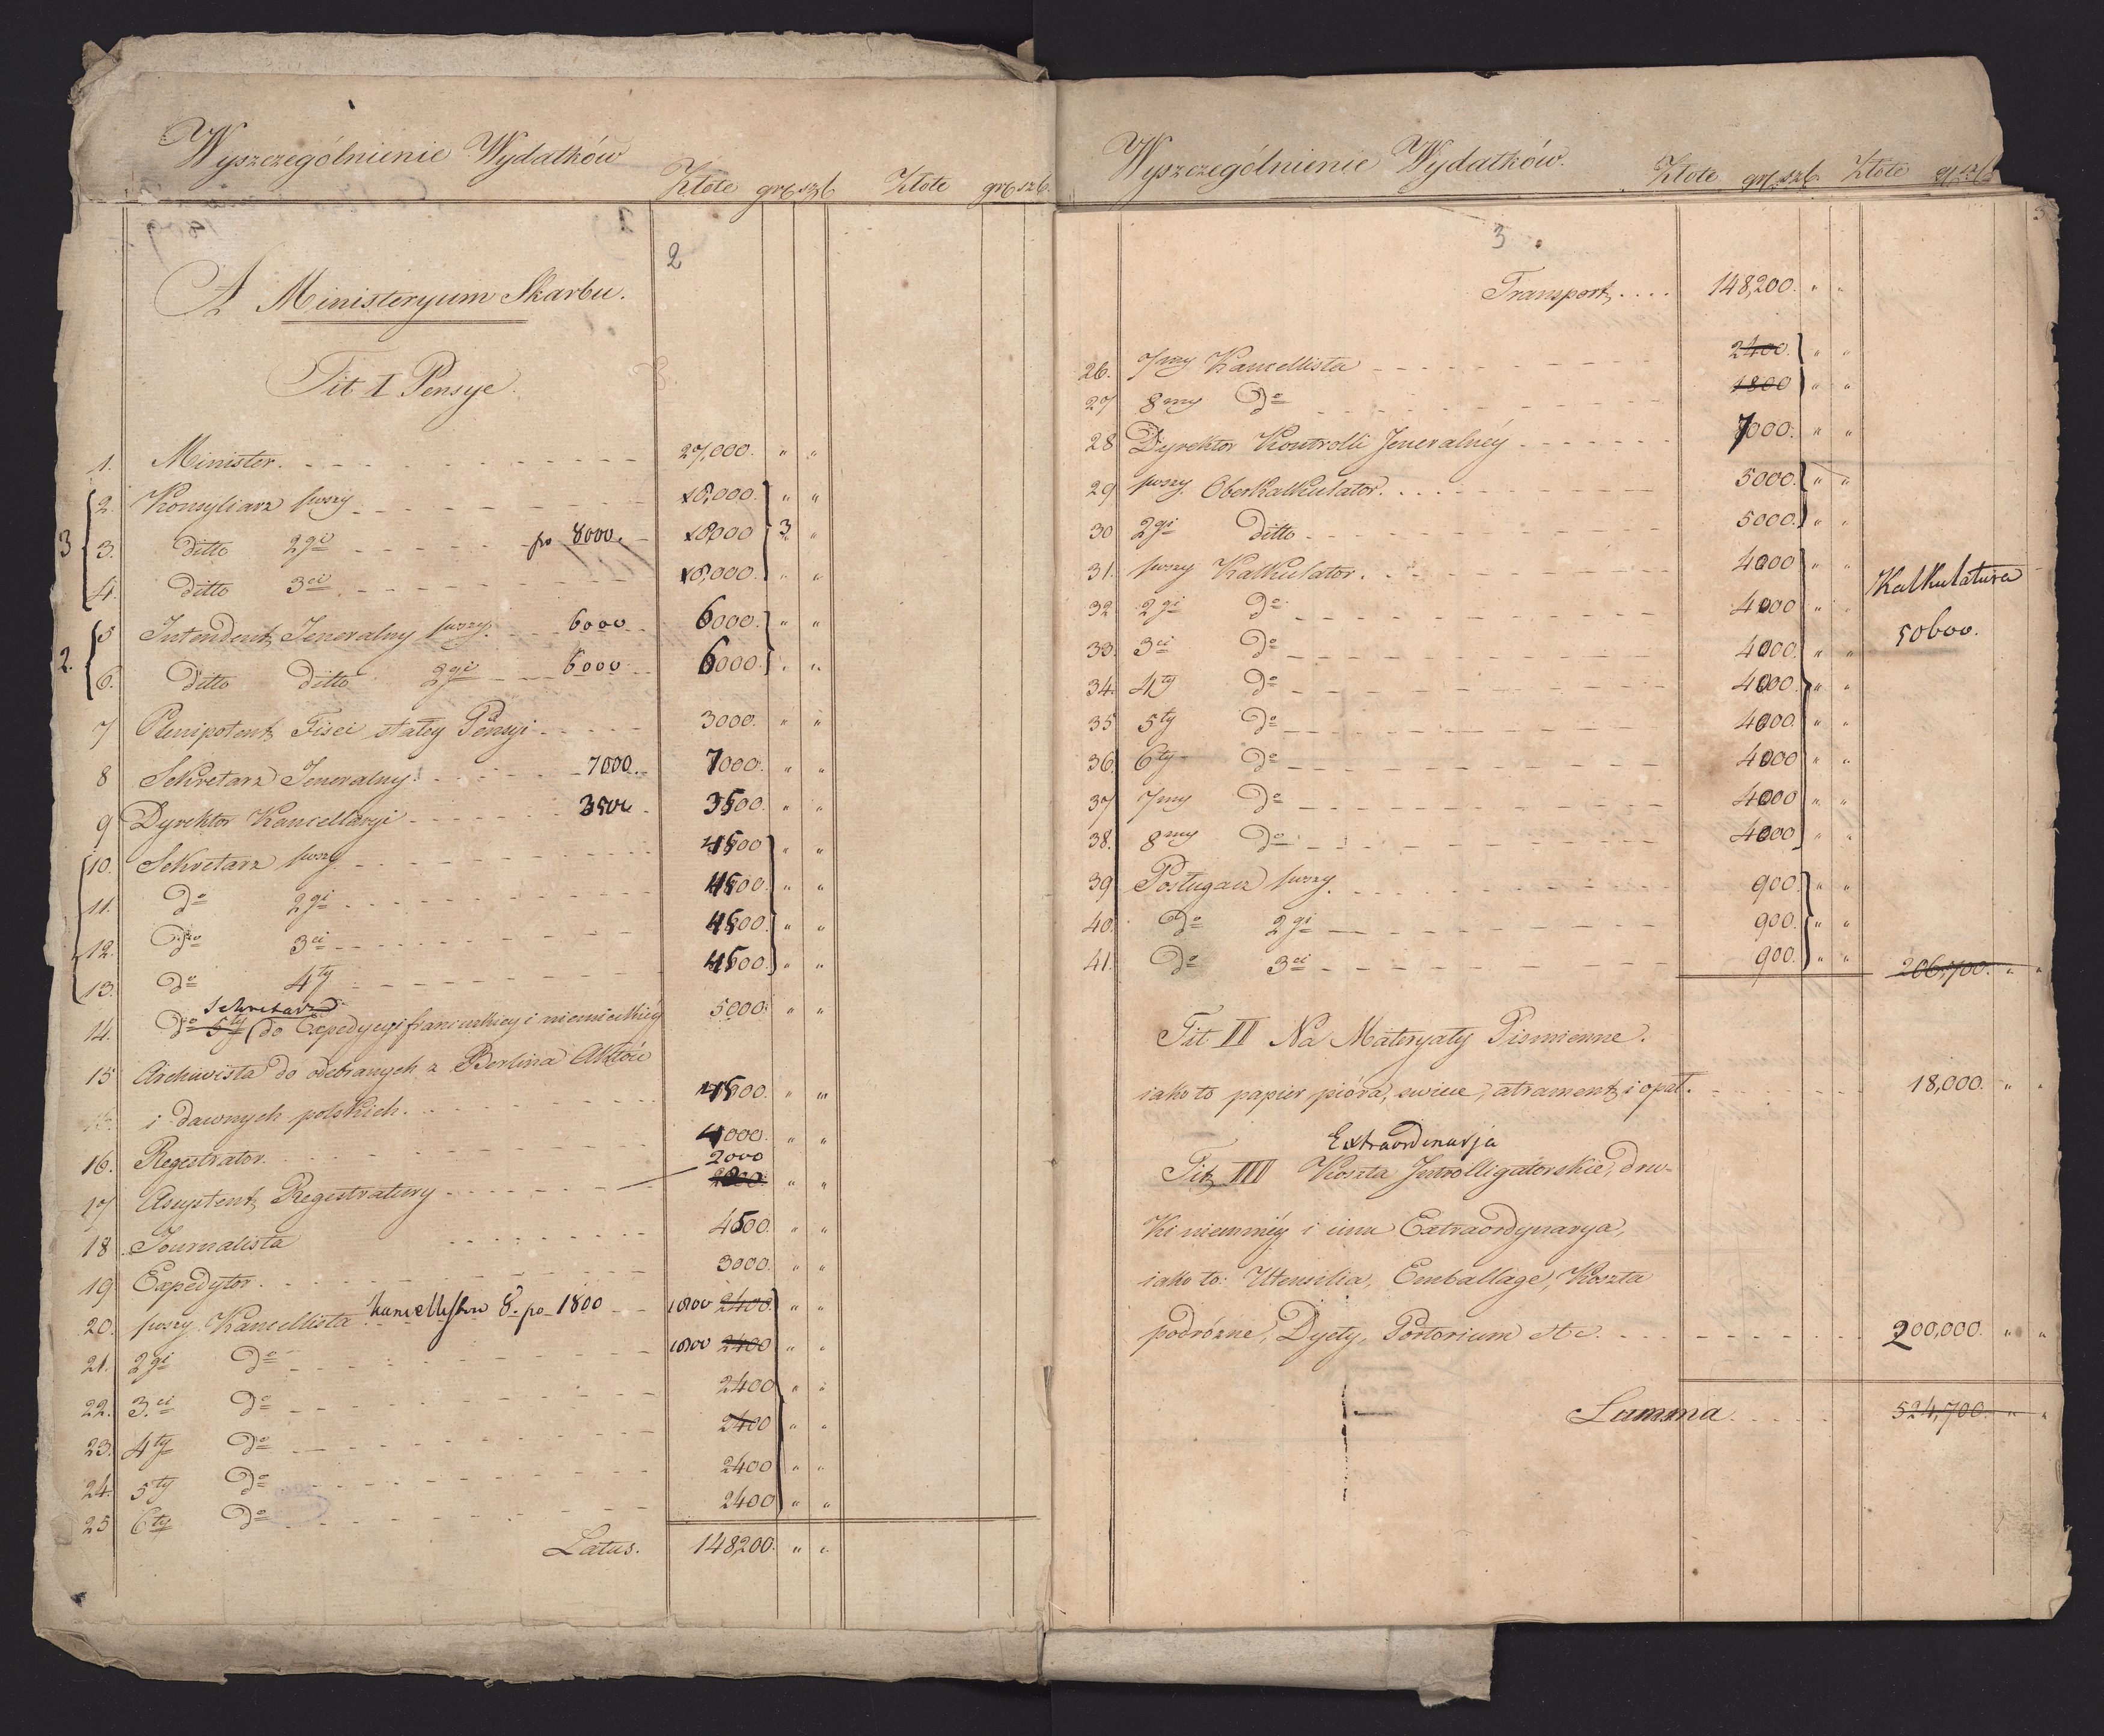 Wyszczególnienie Wydatków
Złote gr szl Złote gr szl
2
A Ministeryum Skarbu.
Tit I Pensye.
1. Minister. 27,000. " "
3 2. Konsyliarz pwszy 8,000. " "
3. ditto 2gi po 8000. 8000 3 "
4. ditto 3ci 8,000. " "
2. 5 Intendent Jeneralny pwszy. 6000 6000. " "
6. ditto ditto 2gi 6000 6000. " "
7 Plenipotent Fisci stałey Pensyi 3000. " "
8 Sekretarz Jeneralny. 7000. 7000. " "
9 Dyrektor Kancellaryi 3500 3500. " "
10. Sekretarz pwszy 4500 " "
11. Do 2gi 4500. " "
12. Do 3ci 4500. " "
13. Do 4ty 4500. " "
Sekretarz
14. Do 5ty (do Expedycyi francuzkiey i niemieckiéy 5000. " "
15 Archiwista do odebranych z Berlina Aktów
i dawnych polskich. 4500. " "
16. Regestrator. 4000. " "
2000
17 Assystent Registratury " "
18 Journalista 4500. " "
19 Expedytor. 3000. " "
20. pwszy. Kancellista kancellistów 8. po 1800 1800 2400. " "
21. 2gi Do 1800 2400 " "
22. 3.ci Do 2400 " "
23. 4ty Do 2400 " "
24. 5ty Do 2400 " "
25 6ty Do 2400 " "
Latus. 148,200. " "
Wyszczególnienie Wydatków.
Złote gr szl Złote gr szl
3
Transport.... 148,200. " "
26. 7my Kancellista 2400. " "
27 8my Do 1800 " "
28 Dyrektor Kontrolli Jeneralnéy 7000. " "
29 pwszy. Oberkalkulator. 5000. " "
30 2gi ditto 5000. " "
31. pwszy Kalkulator. 4000 " "
Kalkulatura
32 2gi Do 4000 " "
50600.
33. 3ci Do 4000. " "
34. 4ty Do 4000. " "
35 5ty Do 4000. " "
36. 6ty Do 4000 " "
37 7my Do 4000 " "
38. 8my Do 4000 " "
39 Posługacz pwszy. 900. " "
40. Do 2gi 900. " "
41. Do 3ci 900. " " 206,700. " "
Tit II Na Materyały Pismienne.
iako to papier pióra, swiece, atrament i opał. 18,000. " "
Extraordinarja
Tit III Koszta Introlligatorskie, dru-
ki niemniéy i inne Extraordynarya,
iako to: Utensilia, Emballage, Koszta
podrózne, Dyety, Portorium etc. 200,000. " "
Summa.... 524,700. " "